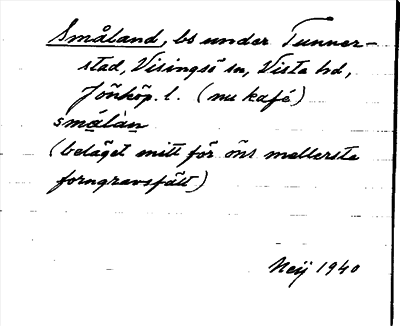 Småland, bs under Tunner-
stad, Visingsö sn, Vista hd,
Jönköp. l. (nu kafé)
smålan
(beläget mitt för öns mellersta
forngravsfält)
Neij 1940